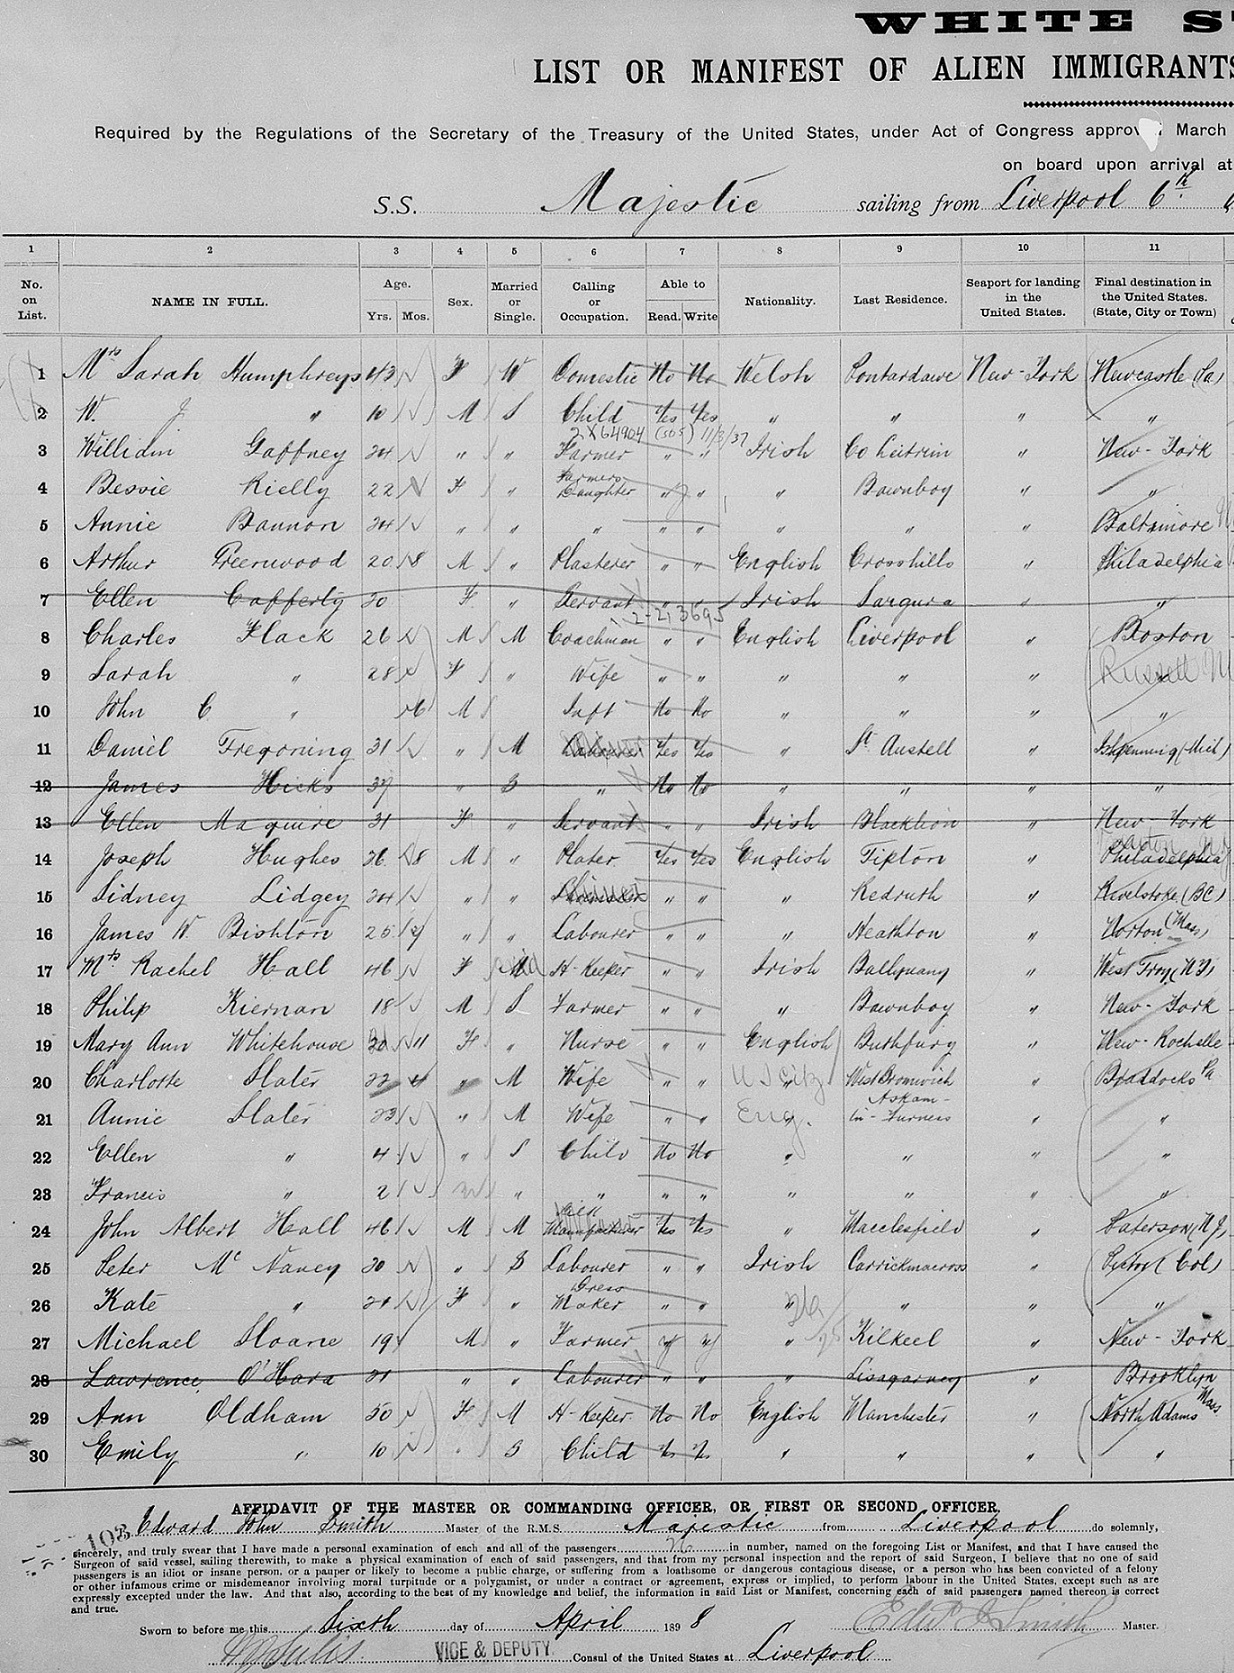 WHITE S
LIST OR MANIFEST OF ALIEN IMMIGRANTS
Required by the Regulations of the Secretary of the Treasury of the United States, under Act of Congress approved March
on board upon arrival at
S.S. Majestic sailing from Liverpool 6th.
1 2 3 4 5 6 7 8 9 10 11
No. on List. NAME IN FULL. Age. Yrs. Mos. Sex. Married or Single. Calling or Occupation. Able to Read. Write Nationality. Last Residence. Seaport for landing in the United States. Final destination in the United States. (State, City or Town)
1 Mrs Sarah Humphreys 43 F W Domestic No No Welsh Pontardawe New-York Newcastle (Pa)
2 W. J. " 10 M S Child Yes Yes " " " "
2X64904 (505) 11/3/37
3 William Gaffney 24 " " Farmer " " Irish Co Leitrim " New-York
4 Bessie Rielly 22 F " Farmers Daughter " " " Bawnboy " "
5 Annie Bannon 24 " " " " " " " " Baltimore
6 Arthur Greenwood 20 8 M " Plasterer " " English Crosshills " Philadelphia
7 Ellen Cafferty 20 F " Servant " " Irish Largura " "
2-213695
8 Charles Flack 26 M M Coachman " " English Liverpool " Boston
9 Sarah " 28 F " Wife " " " " " Russell
10 John C " 6 M Inft No No " " " "
11 Daniel Tregoning 31 " M Labourer Yes Yes " St. Austell " Ishpenning (Mich)
12 James Hicks 37 " S " No No " " " "
13 Ellen Maguire 31 F " Servant " " Irish Blacklion " New-York
14 Joseph Hughes 26 8 M " Plater Yes Yes English Tipton " Philadelphia
15 Sidney Lidgey 24 " " " " " Redruth " Revelstoke (BC)
16 James W. Bishton 25 " " Labourer " " " Heathton " Norton (Mass)
17 Mrs Rachel Hall 46 F H-Keeper " " Irish Ballynany " West Troy (N.Y)
18 Philip Kiernan 18 M S Farmer " " " Bawnboy " New-York
19 Mary Ann Whitehouse 30 11 F " Nurse " " English " New-Rochelle
20 Charlotte Slater 22 4 " M Wife " " U S citz. West Bromwich " Braddocks Pa
21 Annie Slater 23 " M Wife " " Eng. Askam-in-Furness " "
22 Ellen " 4 " S Child No No " " " "
23 Francis " 2 " " " " " " " "
24 John Albert Hall 46 M M Manufacturer Yes Yes " Macclesfield " Paterson (N.J)
25 Peter Mc Naney 20 " S Labourer " " Irish Carrickmacross " (Col)
26 Kate " 21 F " Dress Maker " " " " " "
27 Michael Sloane 19 M " Farmer " " " Kilkeel " New-York
28 Lawrence O'Hara 21 " " Labourer " " " Lisagarvey " Brooklyn
29 Ann Oldham 50 F M H-Keeper No No English Manchester " North Adams Mass.
30 Emily " 10 " S Child Ys Ys " " " "
AFFIDAVIT OF THE MASTER OR COMMANDING OFFICER, OR FIRST OR SECOND OFFICER.
103
Edward John Smith Master of the R.M.S. Majestic from Liverpool do solemnly,
sincerely, and truly swear that I have made a personal examination of each and all of the passengers 26 in number, named on the foregoing List or Manifest, and that I have caused the
Surgeon of said vessel, sailing therewith, to make a physical examination of each of said passengers, and that from my personal inspection and the report of said Surgeon, I believe that no one of said
passengers is an idiot or insane person, or a pauper or likely to become a public charge, or suffering from a loathsome or dangerous contagious disease, or a person who has been convicted of a felony
or other infamous crime or misdemeanor involving moral turpitude or a polygamist, or under a contract or agreement, express or implied, to perform labour in the United States, except such as are
expressly excepted under the law. And that also, according to the best of my knowledge and belief, the information in said List or Manifest, concerning each of said passengers named thereon is correct
and true.
Sworn to before me this Sixth day of April 1898 Edw J Smith Master.
VICE & DEPUTY Consul of the United States at Liverpool